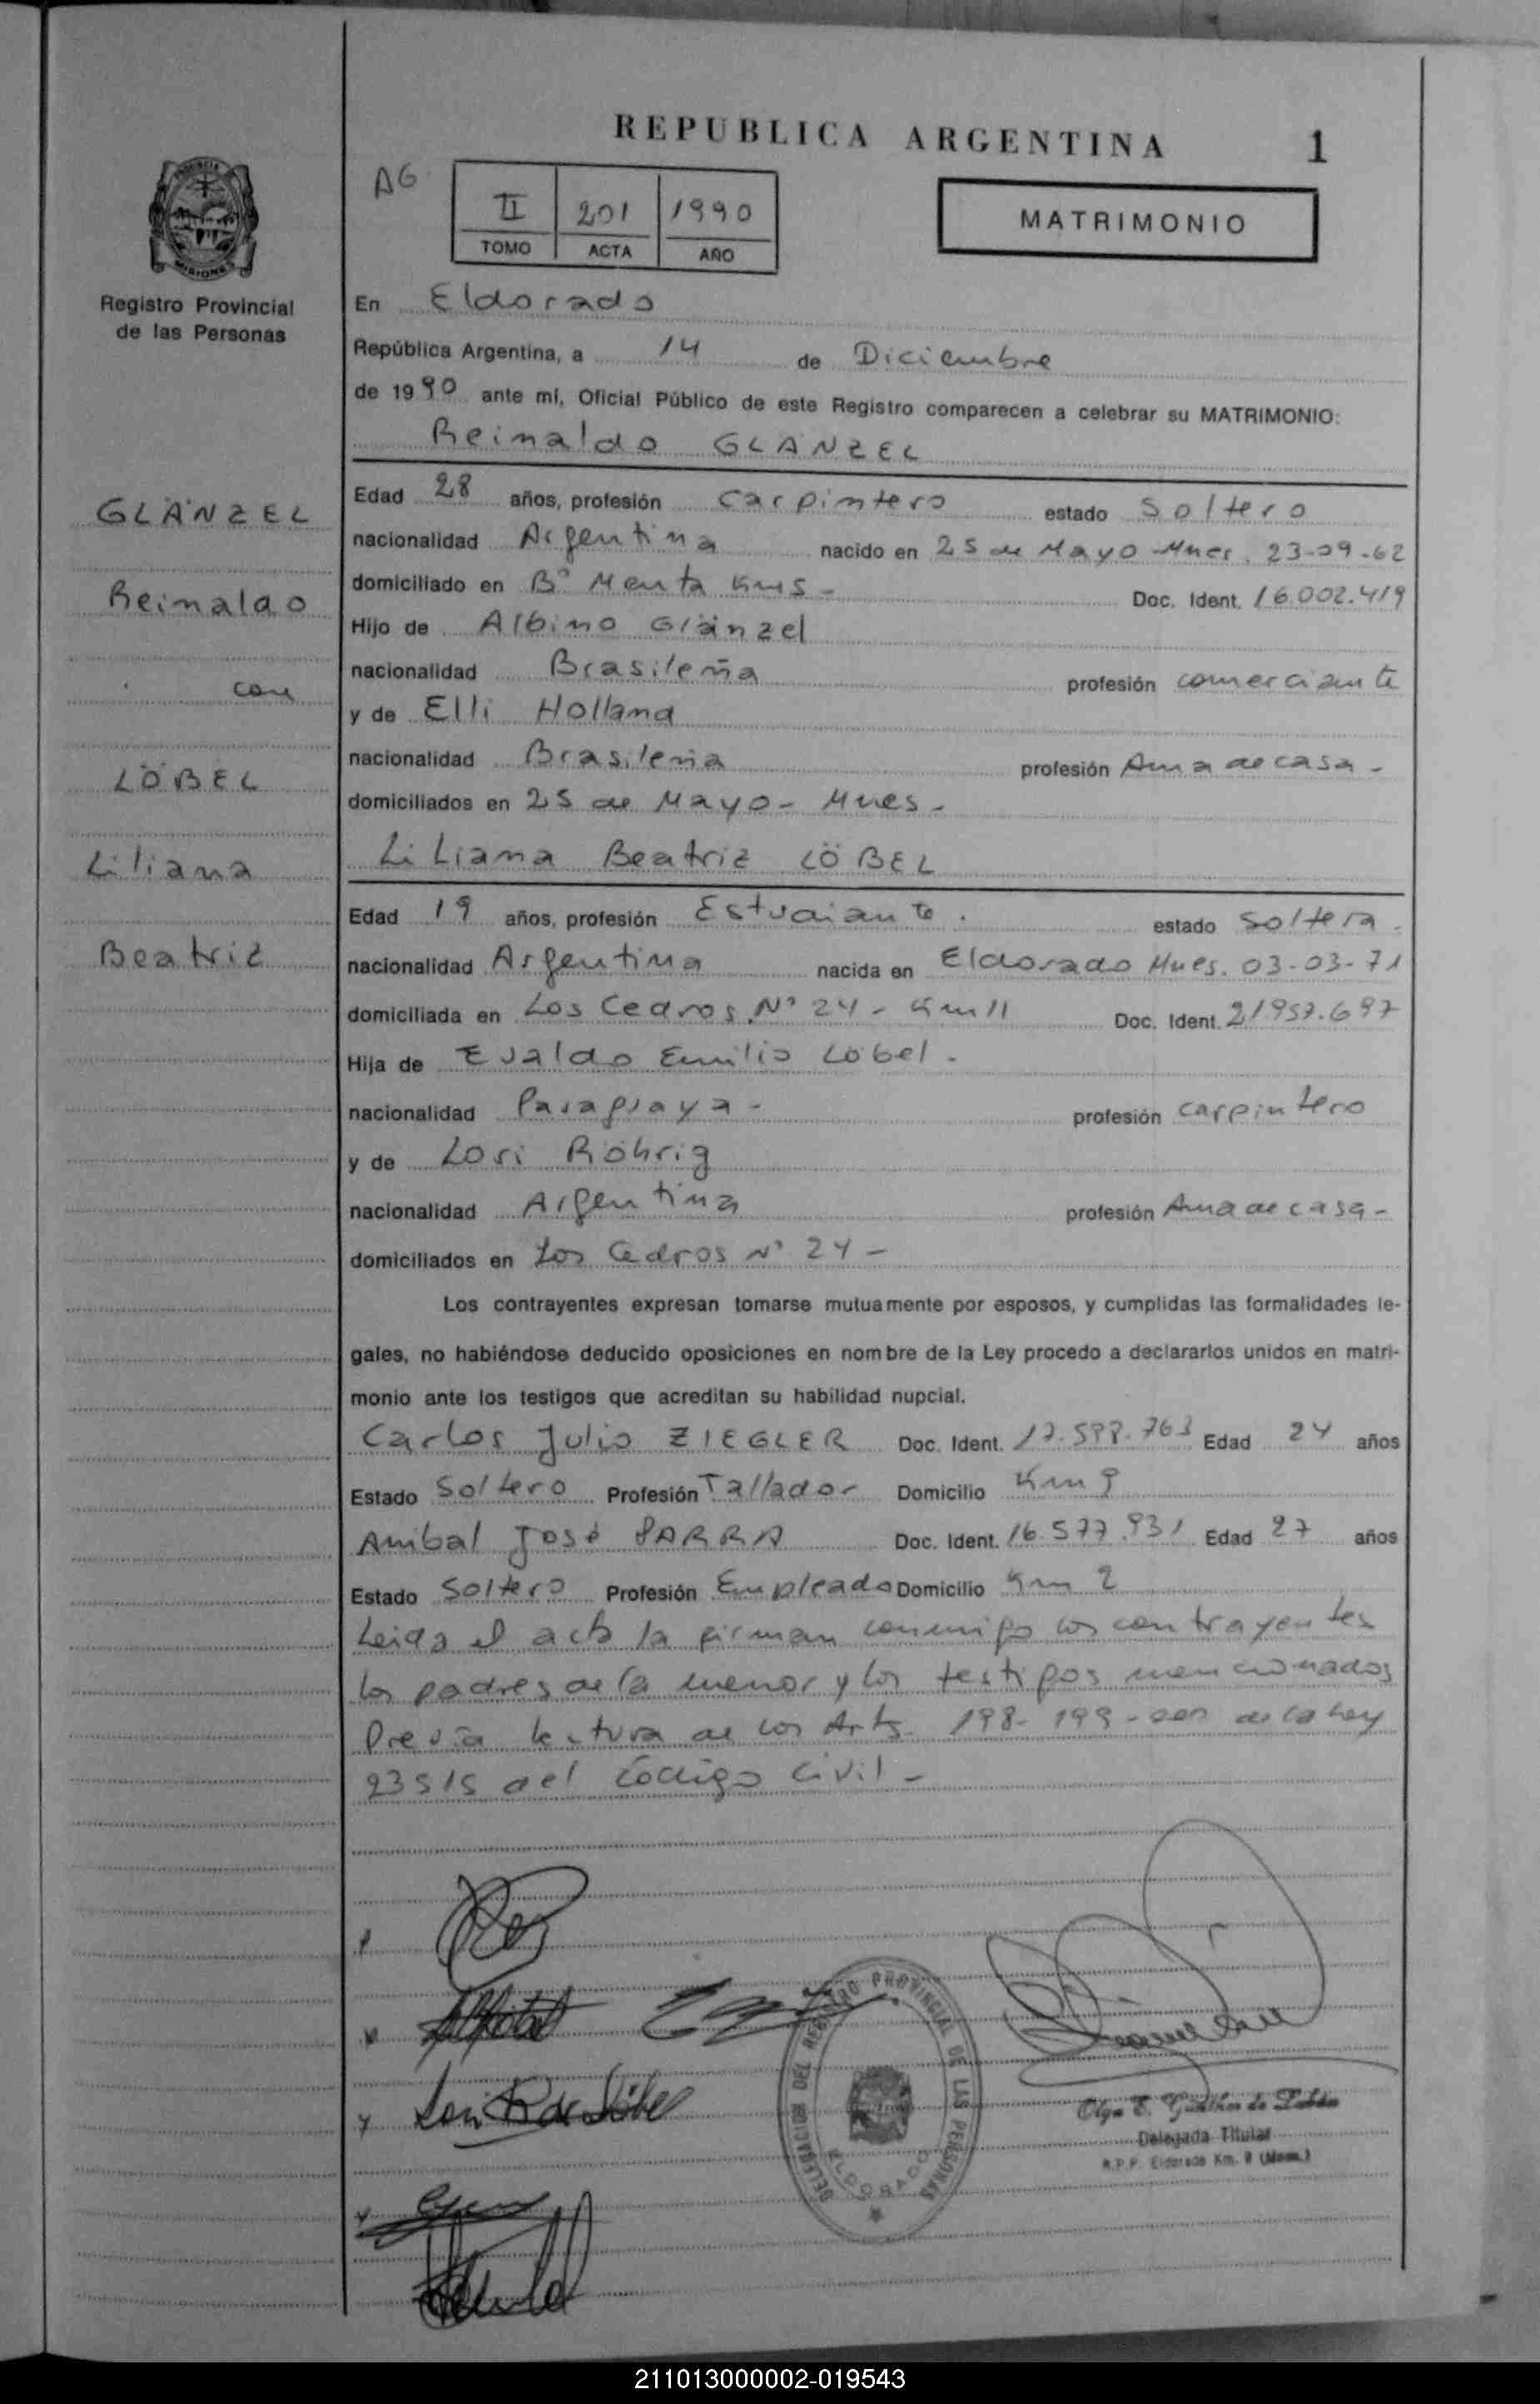 REPUBLICA ARGENTINA
1
AG
II 201 1990
TOMO ACTA AÑO
MATRIMONIO
MISIONES
Registro Provincial
de las Personas
En Eldorado
República Argentina, a 14 de Diciembre
de 1990 ante mí, Oficial Público de este Registro comparecen a celebrar su MATRIMONIO:
Reinaldo GLÄNZEL
GLÄNZEL
Reinaldo
con
LÖBEL
Liliana
Beatriz
Edad 28 años, profesión Carpintero estado Soltero
nacionalidad Argentina nacido en 25 de Mayo Mnes. 23-09-62
domiciliado en Bº Menta Km5 - Doc. Ident. 16.002.419
Hijo de Albino Glänzel
nacionalidad Brasileña profesión comerciante
y de Elli Holland
nacionalidad Brasileña profesión Ama de casa -
domiciliados en 25 de Mayo - Mnes -
Liliana Beatriz LÖBEL
Edad 19 años, profesión Estudiante. estado Soltera.
nacionalidad Argentina nacida en Eldorado Mnes. 03-03-71
domiciliada en Los Cedros Nº 24 - Km 11 Doc. Ident. 21957.697
Hija de Evaldo Emilio Löbel -
nacionalidad Paraguaya - profesión carpintero
y de Lori Röhrig
nacionalidad Argentina profesión Ama de casa -
domiciliados en Los Cedros Nº 24 -
Los contrayentes expresan tomarse mutuamente por esposos, y cumplidas las formalidades le-
gales, no habiéndose deducido oposiciones en nombre de la Ley procedo a declararlos unidos en matri-
monio ante los testigos que acreditan su habilidad nupcial.
Carlos Julio ZIEGLER Doc. Ident. Edad 24 años
Estado Soltero Profesión Tallador Domicilio Km 9
Anibal José PARRA Doc. Ident. 16.577.931 Edad 27 años
Estado Soltero Profesión Empleado Domicilio Km 2
Leida el acta la firman conmigo los contrayentes
los padres de la menor y los testigos mencionados
Previa lectura de los Arts. 198- 199 - 200 de la Ley
23515 del Código Civil -
DELEGACION DEL REGISTRO PROVINCIAL DE LAS PERSONAS
ELDORADO
Lori R de Löbel
Olga E. de
Delegada Titular
R.P.P. Eldorado Km. 9 (Mnes.)
211013000002-019543